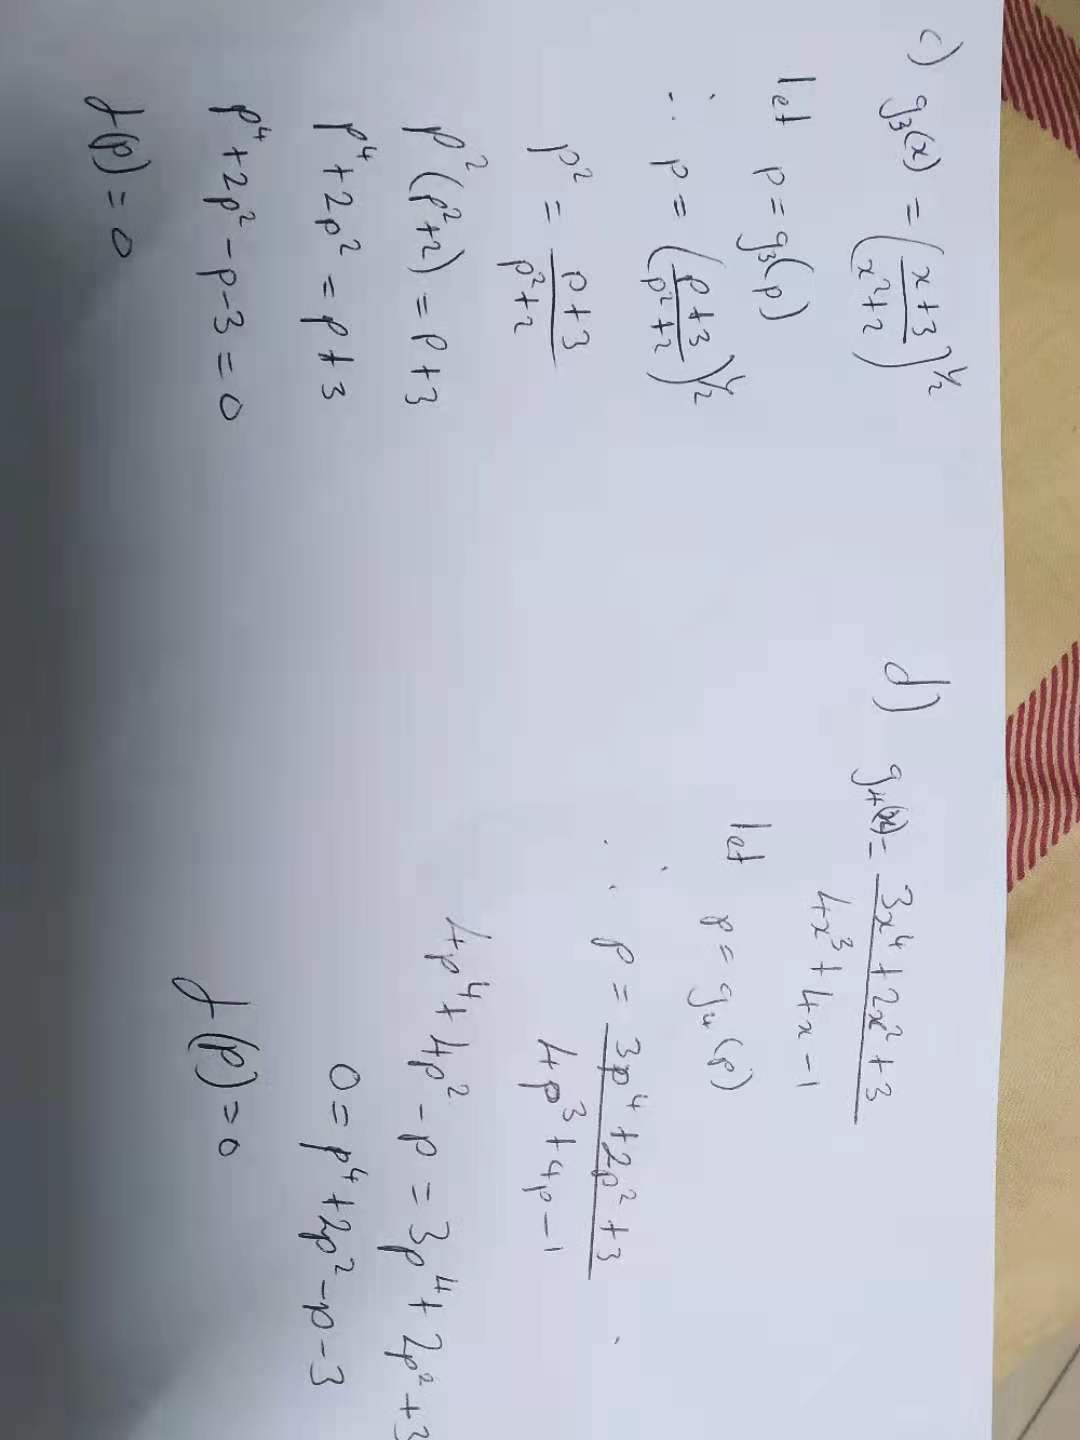 c) g₃(x) = ((x+3)/(x²+2))^½
let p = g₃(p)
∴ p = ((p+3)/(p²+2))^½
p² = (p+3)/(p²+2)
p²(p²+2) = p+3
p⁴+2p² = p+3
p⁴+2p²-p-3=0
f(p)=0
d) g₄(x)= (3x⁴+2x²+3)/(4x³+4x-1)
let p = g₄(p)
∴ p = (3p⁴+2p²+3)/(4p³+4p-1)
4p⁴+4p²-p = 3p⁴+2p²+3
0=p⁴+2p²-p-3
f(p)=0